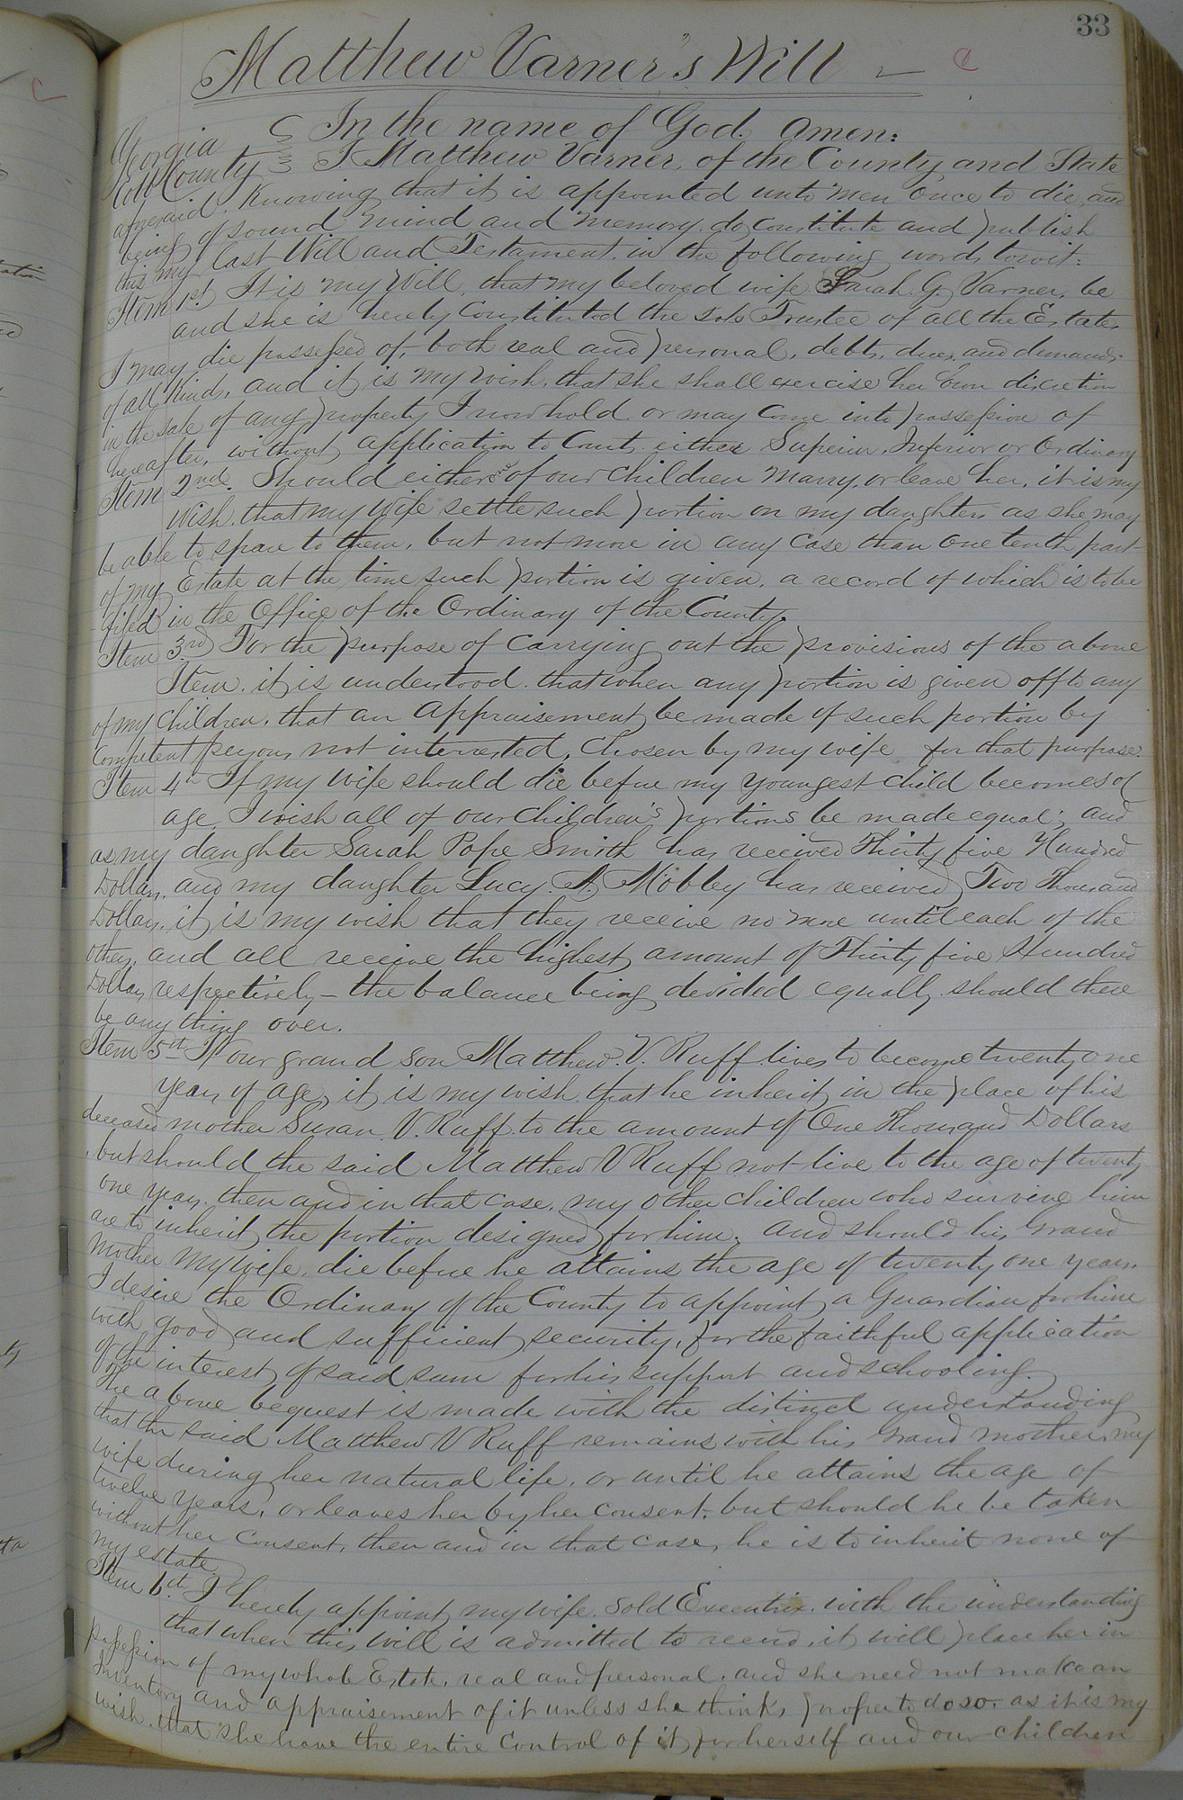 33
Matthew Varner's Will
Georgia
Cobb County
In the name of God. Amen:
I Matthew Varner, of the County and State
aforesaid. Knowing that it is appointed unto men once to die, and
being of sound mind and memory, do constitute and publish
this my last Will and Testament, in the following words, towit:
Item 1st It is my Will, that my beloved wife Sarah G. Varner, be
and she is hereby Constituted the sole Trustee of all the Estate,
I may die possessed of, both real and personal, debts, dues, and demands
of all kinds, and it is my wish, that she shall exercise her own discretion
in the sale of any property I now hold or may come into possession of
hereafter, without application to Court either Superior, Inferior or Ordinary
Item 2nd. Should either of our children marry, or leave her, it is my
Wish, that my Wife settle such portion on my daughters as she may
be able to spare to them, but not more in any case than one tenth part
of my Estate at the time such portion is given, a record of which is to be
filed in the Office of the Ordinary of the County.
Item 3rd For the purpose of carrying out the provisions of the above
Item, it is understood that when any portion is given off to any
of my children, that an appraisement be made of such portion by
Competent persons, not interested, chosen by my wife for that purpose.
Item 4th If my wife should die before my youngest child becomes of
age, I wish all of our children's portions be made equal; and
as my daughter Sarah Pope Smith has received Thirty five Hundred
Dollars, and my daughter Lucy A. Mobley has received Two Thousand
Dollars, it is my wish that they receive no more until each of the
others, and all receive the highest amount of Thirty five Hundred
Dollars respectively - the balance being devided equally should there
be any thing over.
Item 5th If our grand son Matthew V. Ruff lives to become twenty one
years of age, it is my wish that he inherit in the place of his
deceased mother Susan V. Ruff to the amount of One Thousand Dollars
but should the said Matthew V Ruff not live to the age of twenty
one years, then and in that case, my other children who survive him
are to inherit the portion designed for him; and should his Grand
Mother My Wife, die before he attains the age of twenty one years.
I desire the Ordinary of the County to appoint a Guardian for him
with good and sufficient security, for the faithful application
of the interest of said sum for his support and schooling.
The above bequest is made with the distinct understanding
that the said Matthew V Ruff remains with his Grand mother, my
wife during her natural life, or until he attains the age of
twelve years, or leaves her by her consent; but should he be taken
without her consent, then and in that case, he is to inherit none of
my estate.
Item 6th. I hereby appoint my wife sold Executrix with the understanding
that when this Will is admitted to record, it will place her in
possession of my whole Estate, real and personal, and she need not make an
Inventory and appraisement of it unless she thinks proper to do so, as it is my
wish, that she have the entire Control of it for herself and our children